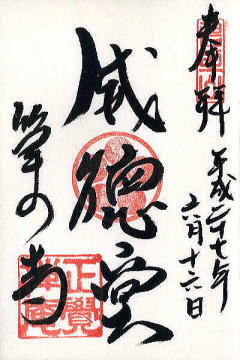 奉拝
平成二十七年
六月十六日
威徳堂
筆の寺
正覺